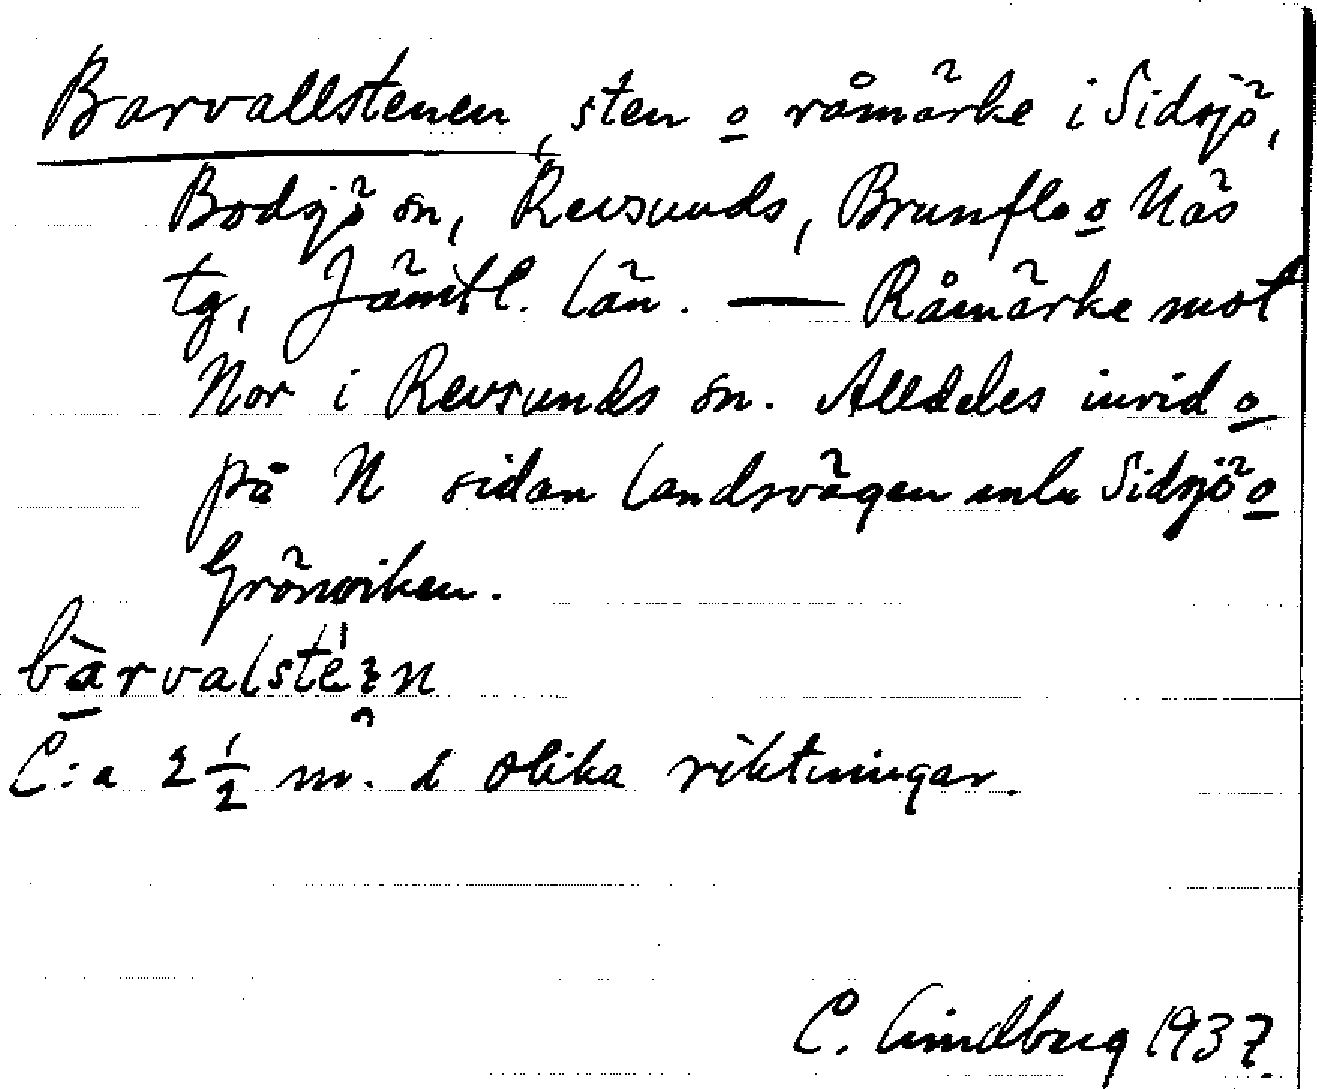 Barvallstenen, sten o råmärke i Sidsjö,
Bodsjö sn, Revsunds, Brunflo o Näs
tg, Jämtl. län. — Råmärke mot
Nor i Revsunds sn. Alldeles invid o
på N sidan landsvägen mln Sidsjö o
Grönviken.
C:a 2 1/2 m. i olika riktningar.
C. Lindberg 1937.